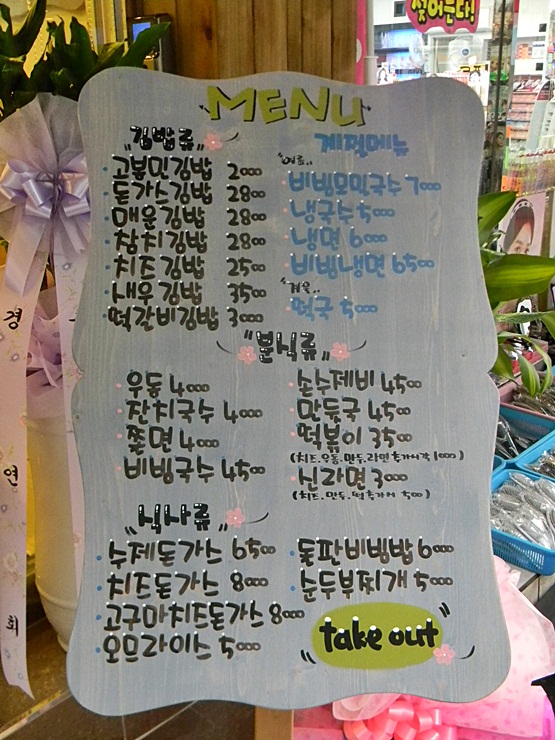 MENU
김밥류
고봉민김밥 2000
돈가스김밥 2800
매운김밥 2800
참치김밥 2800
치즈김밥 2500
새우김밥 3500
떡갈비김밥 3000
계절메뉴
여름..
비빔모밀국수 7000
냉국수 5000
냉면 6000
비빔냉면 6500
겨울..
떡국 5000
분식류
우동 4000
잔치국수 4000
쫄면 4000
비빔국수 4500
손수제비 4500
만두국 4500
떡볶이 3500
(치즈.우동.만두.라면 추가시각 1000)
신라면 3000
(치즈.만두.떡 추가시 500)
식사류
수제돈가스 6500
치즈돈가스 8000
고구마치즈돈가스 8000
오므라이스 5000
돌판비빔밥 6000
순두부찌개 5000
take out
경
연
희